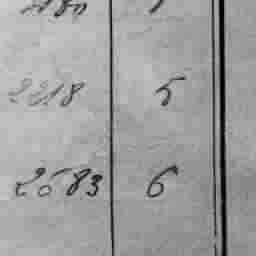 2218 5
2583 6